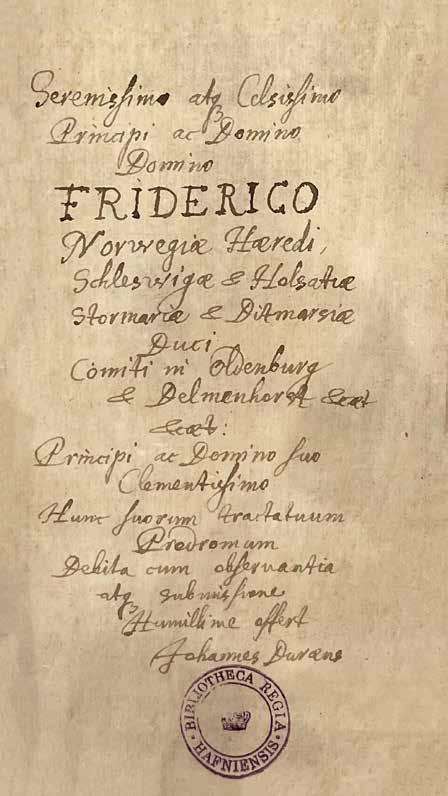 Serenissimo atqꝫ Celsissimo
Principi ac Domino
Domino
FRIDERICO
Norwegiæ Hæredi,
Schleswigæ & Holsatiæ
Stormariæ & Ditmarsiæ
Duci
Comiti in Oldenburg
& Delmenhorst &cæt
&cæt:
Principi ac Domino suo
Clementissimo
Hunc suorum tractatuum
Prodromum
Debita cum observantia
atqꝫ submissione
Humillime offert
Johannes Duræus
BIBLIOTHECA REGIA
HAFNIENSIS